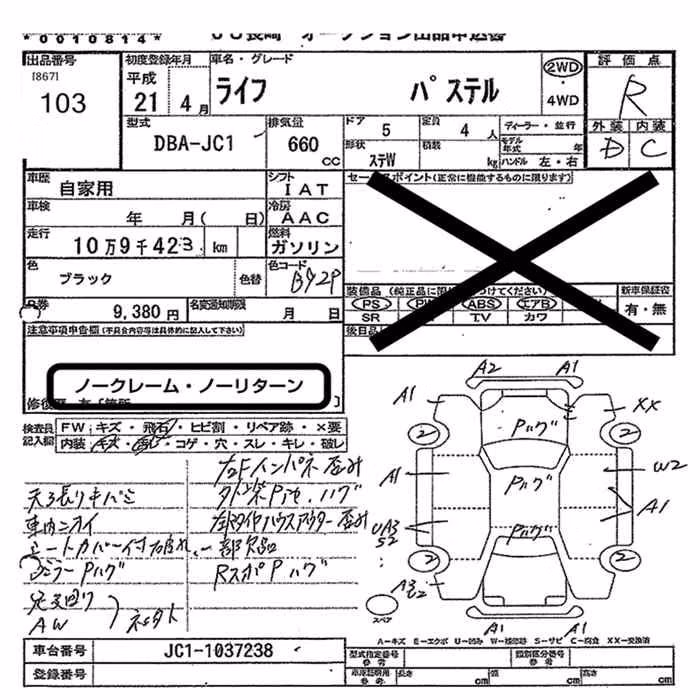 *0010814*
JU長崎 オークション出品申込書
出品番号
[867]
103
初度登録年月
平成
21 4月
車名・グレード
ライフ パステル
2WD
・
4WD
評価点
R
外装 内装
D C
型式
DBA-JC1
排気量
660
CC
ドア 5
定員 4 人
ディーラー・並行
形状
ステW
積載 kg
モデル年式 年
ハンドル 左・右
車歴
自家用
シフト
IAT
セールスポイント(正常に機能するものに限ります)
車検
年 月( 日)
冷房
AAC
走行
10万9千423 km
燃料
ガソリン
色
ブラック
色替
色コード
B92P
R券
9,380円
名変通知期限
月 日
装備品(純正品に限
つけてください)
新車保証書
PS PW ABS エアB
有・無
SR TV カワ
後日品
注意事項申告欄(不具合内容等は具体的に記入して下さい)
ノークレーム・ノーリターン
検査員
記入欄
FW キズ・飛石・ヒビ割・リペア跡・×要
内装 キズ・汚レ・コゲ・穴・スレ・キレ・破レ
左Fインパネ歪み
天張り キバミ
車内ニオイ
シートカバー付
一部欠品
ミラーPハゲ
RスポPハゲ
足廻り
AW
A2 A1
A1 XX
2 2
Pハゲ
A1 Pハゲ W2
A1
UA3
S2
Pハゲ
2 2
A3
U2
スペア
A1 A1
A-キズ E-エクボ U-凹み W-補修跡 S-サビ C-腐食 XX-交換済
車台番号
JC1-1037238
登録番号
型式指定番号
参考
類別区分番号
参考
車庫証明用
参考
長さ cm
幅 cm
高さ cm